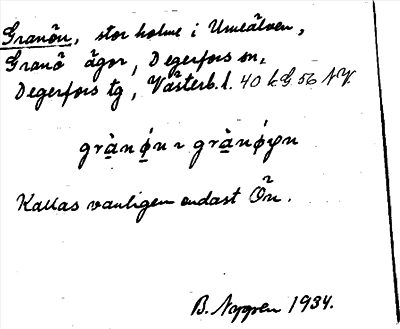 Granön, stor holme i Umeälven,
Granö ägor, Degerfors sn,
Degerfors tg, Västerb. l. 40 k G. 56 NV
gràn ǿn ~ grànǿɳn
Kallas vanligen endast Ön.
B. Nygren 1934.